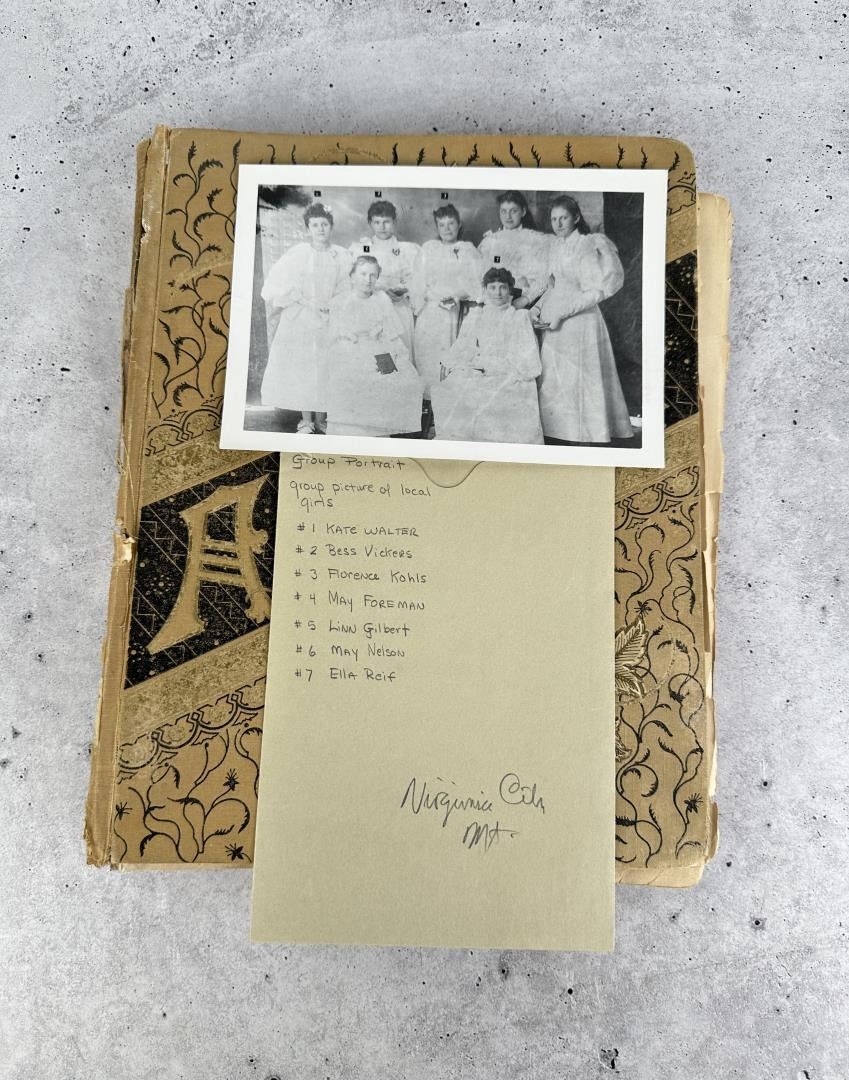 Group Portrait
group picture of local
girls
# 1 KATE WALTER
# 2 Bess Vickers
# 3 Florence Kohls
# 4 MAY FOREMAN
# 5 LINN Gilbert
# 6 MAY Nelson
# 7 Ella Reif
Virginia City
Mt.
A